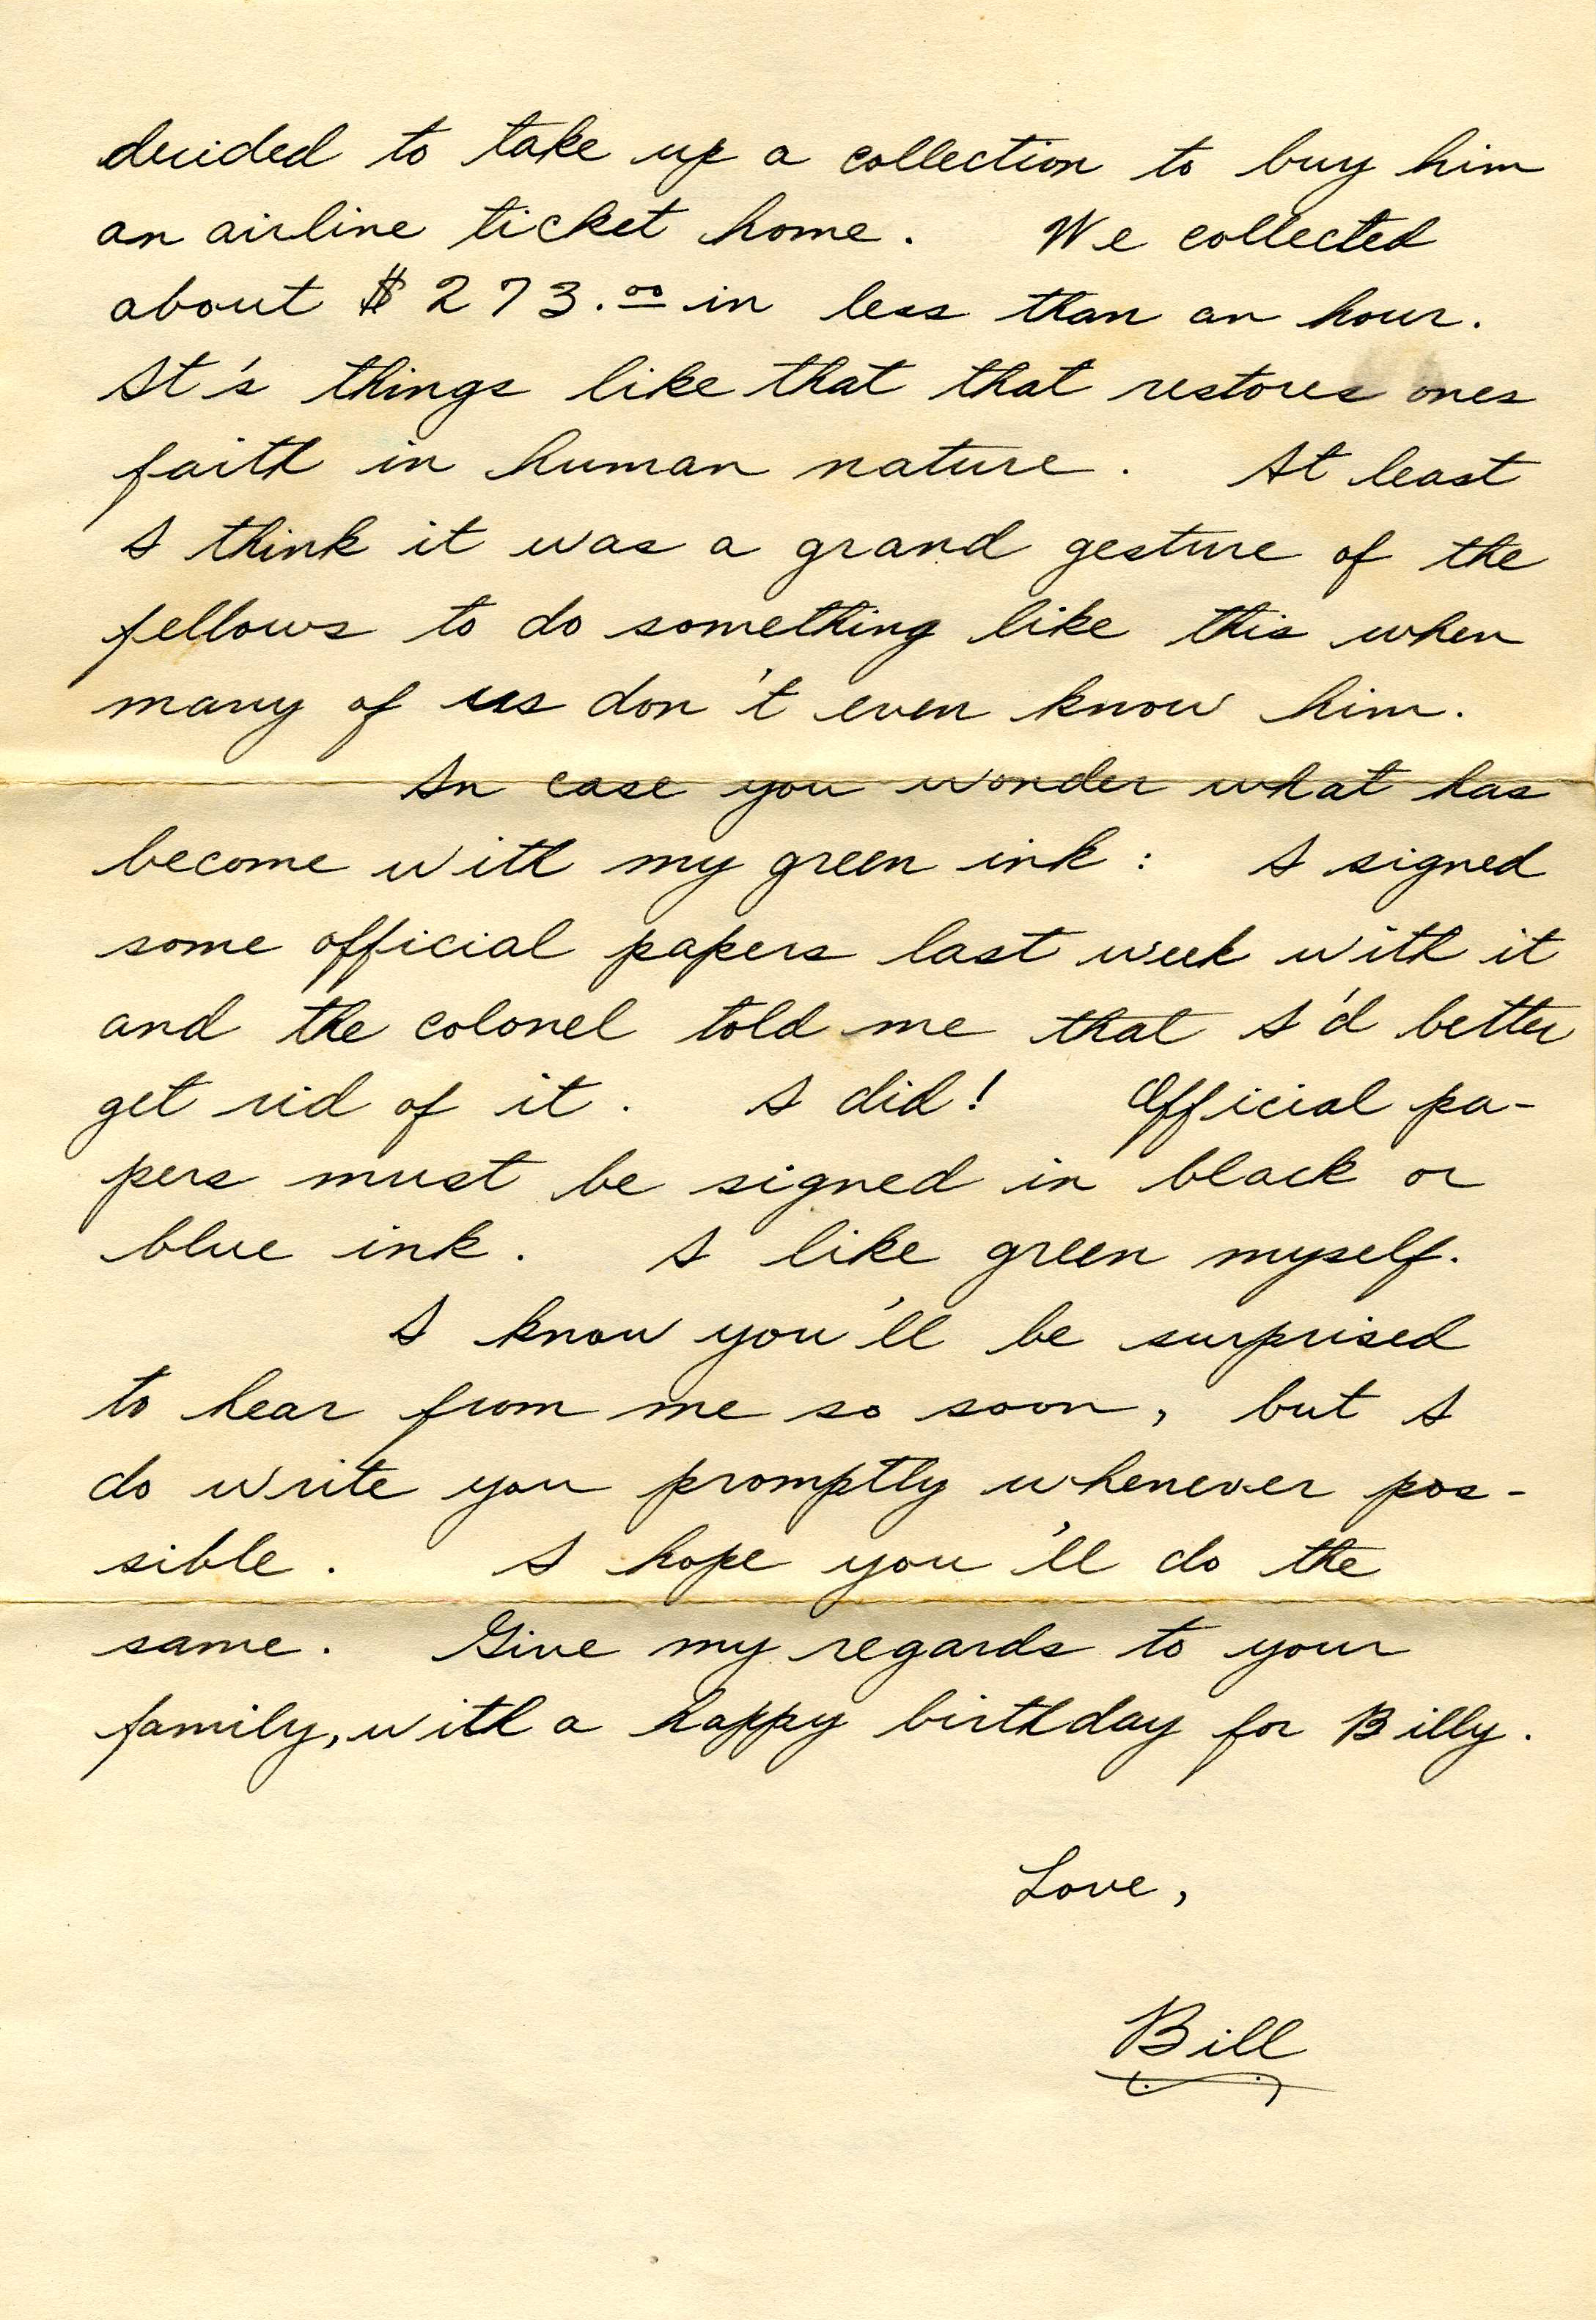 decided to take up a collection to buy him
an airline ticket home. We collected
about $273.00 in less than an hour.
It's things like that that restores ones
faith in human nature. At least
I think it was a grand gesture of the
fellows to do something like this when
many of us don't even know him.
In case you wonder what has
become with my green ink: I signed
some official papers last week with it
and the colonel told me that I'd better
get rid of it. I did! Official pa-
pers must be signed in black or
blue ink. I like green myself.
I know you'll be surprised
to hear from me so soon, but I
do write you promptly whenever pos-
sible. I hope you'll do the
same. Give my regards to your
family, with a happy birthday for Billy.
Love,
Bill